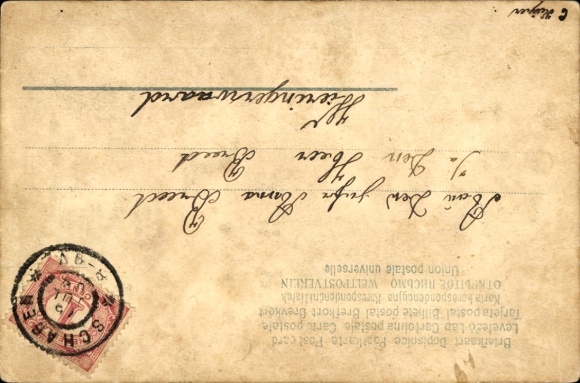 Briefkaart Dopisnice Postkarte Post card
Levelező Lap Cartolina postale Carte postale
Tarjeta postal Bilhete postal Brefkort Brevkort
Karta korespondencyjna Korespondenční lístek
ОТКРЫТОЕ ПИСЬМО WELTPOSTVEREIN
Union postale universelle
SCHAGEN
8-9V
Aan Den Jufr Anna Breed
p/a Den Heer Breed
Wieringerwaard